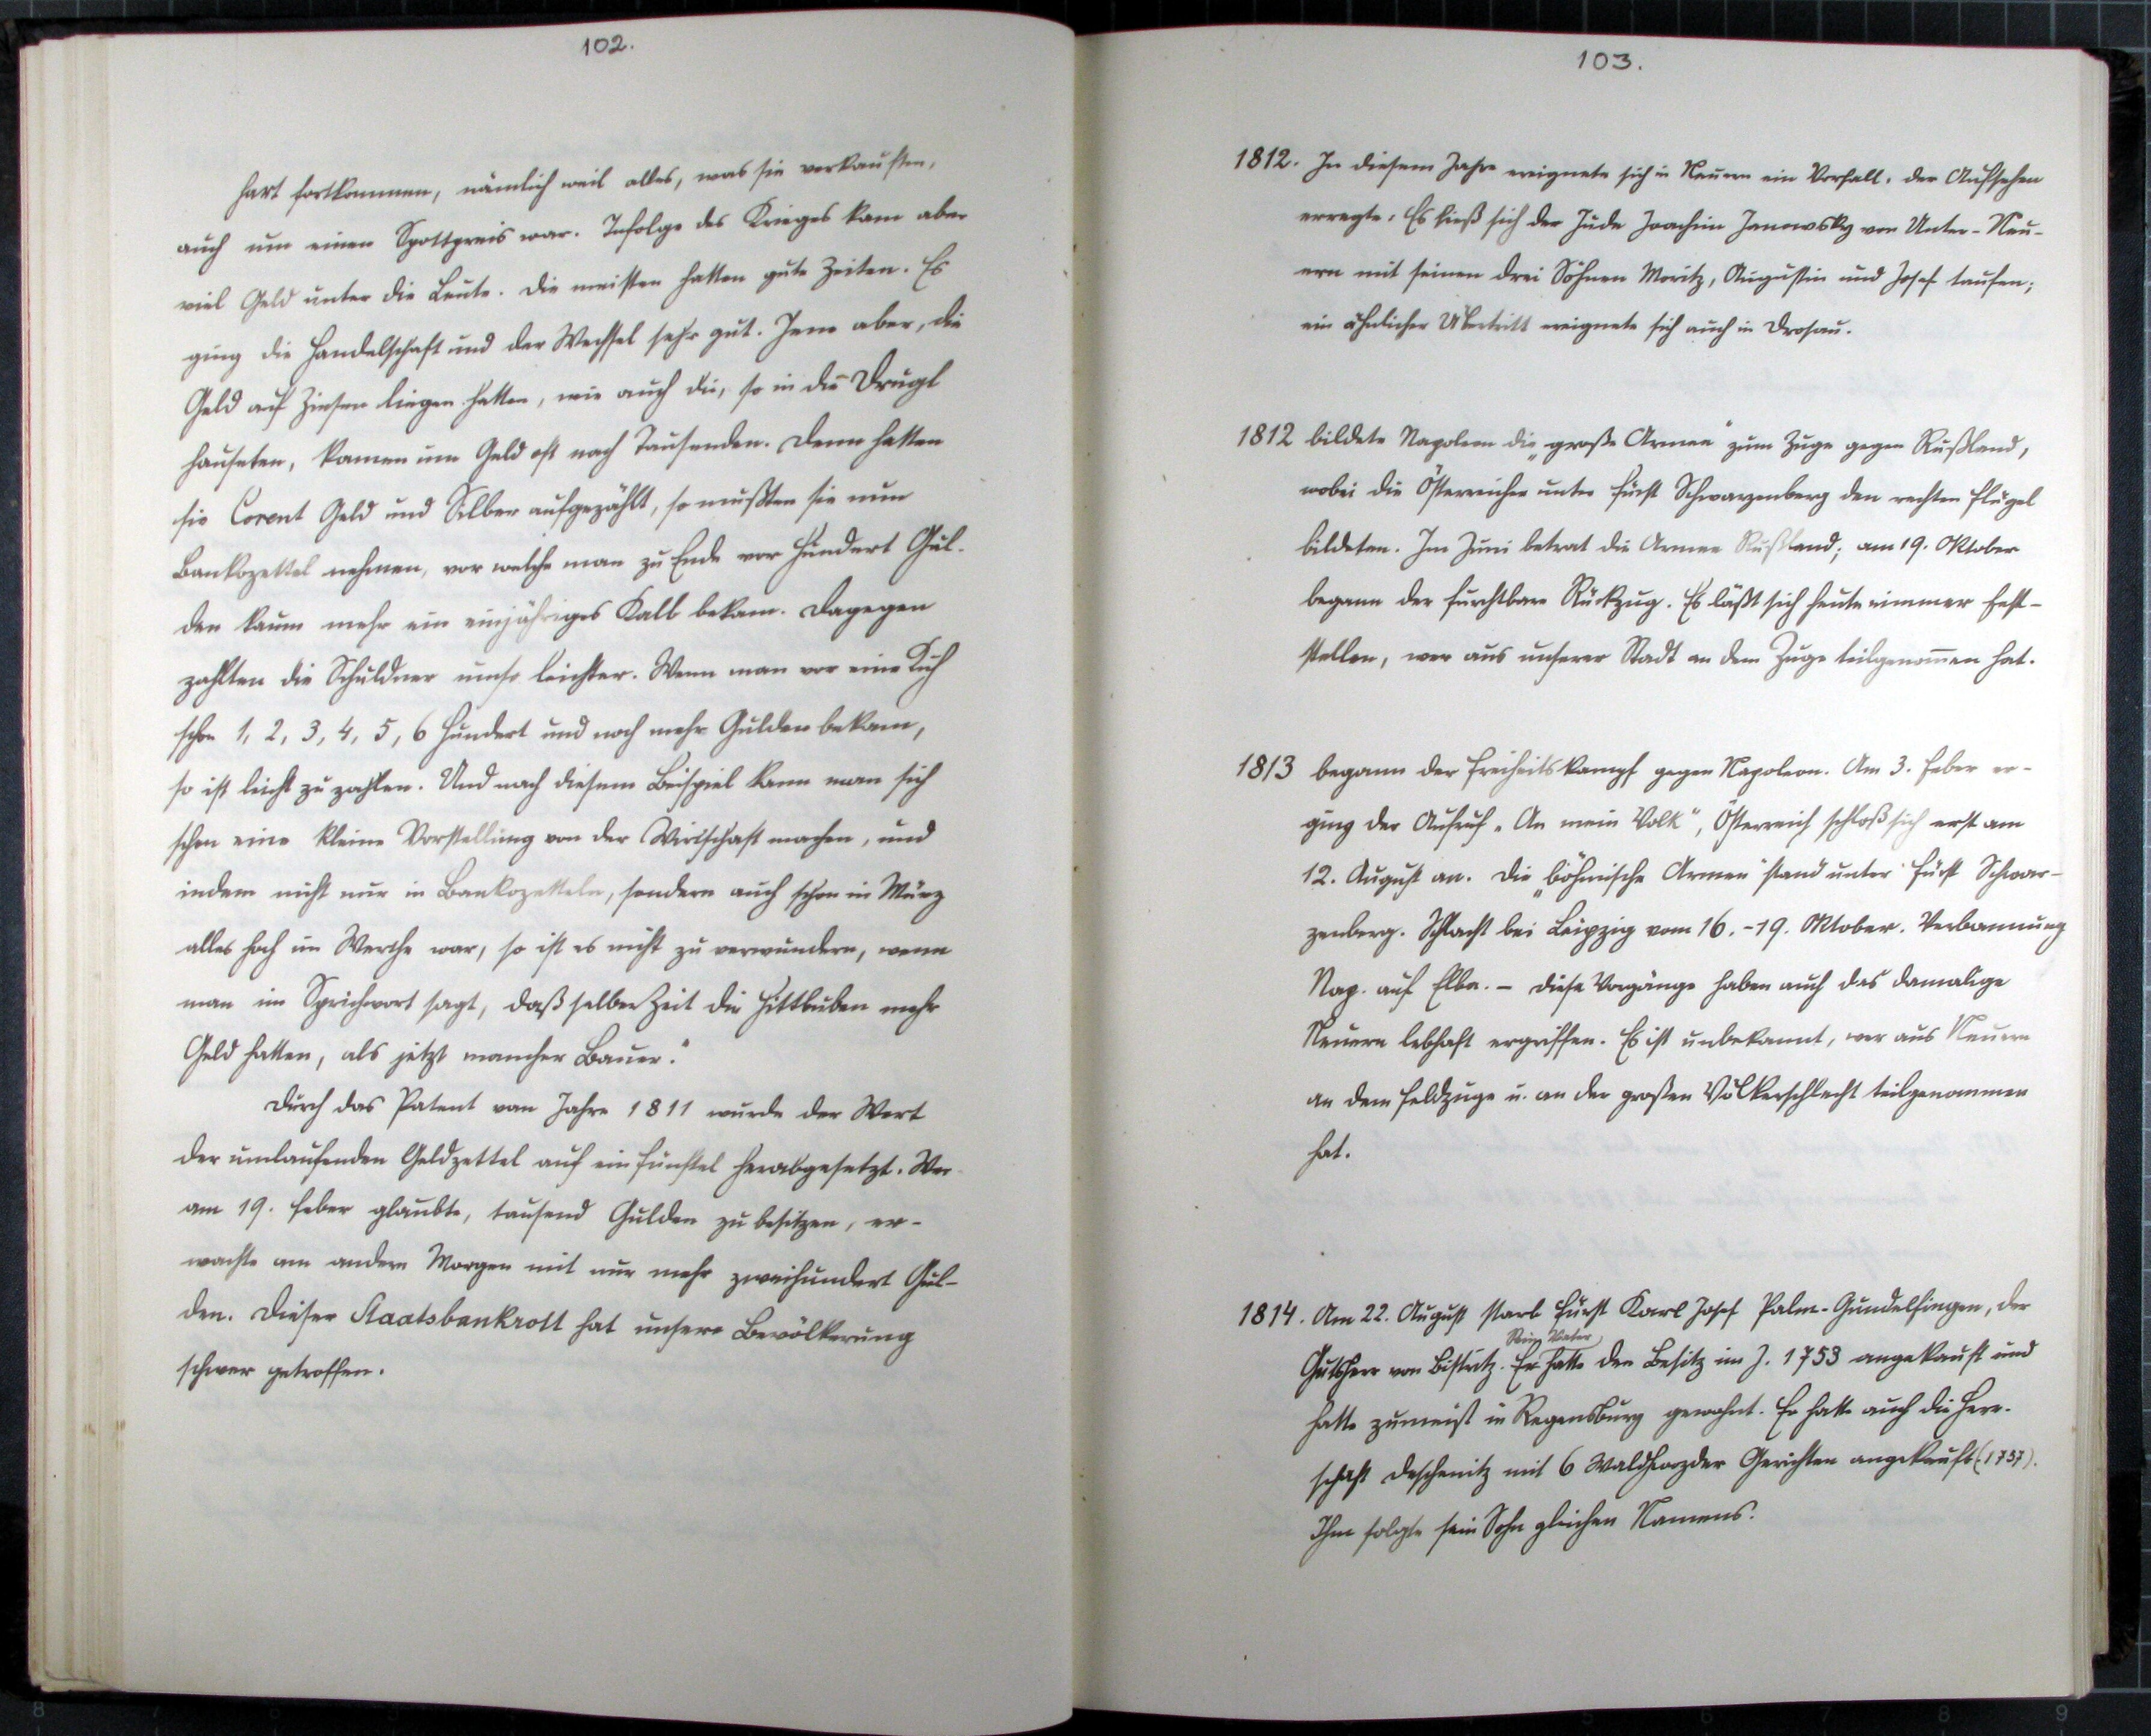 102.
hart fortkommen, nämlich weil alles, was sie verkauften,
auch um einen Spottpreis war. Infolge des Krieges kam aber
viel Geld unter die Leute. Die meisten hatten gute Zeiten. Es
ging die Handelschaft und der Wechsel sehr gut. Jene aber, die
Geld auf Zinsen liegen hatten, wie auch die, so in die
hauseten, kamen um Geld oft nach Tausenden. Denn hatten
sie Corent Geld und Silber aufgezählt, so mußten sie nun
Bankozettel nehmen, vor welche man zu Ende vor hundert Gul-
den kaum mehr ein einjähriges Kalb bekam. Dagegen
zahlten die Schuldner umso leichter. Wenn man vor eine Kuh
schon 1, 2, 3, 4, 5, 6 hundert und noch mehr Gulden bekam,
so ist leicht zu zahlen. Und nach diesem Beispiel kann man sich
schon eine kleine Vorstellung von der Wirtschaft machen, und
indem nicht nur in Bankozetteln, sondern auch schon in Münz
alles hoch im Werthe war, so ist es nicht zu verwundern, wenn
man im Sprichwort sagt, daß selber Zeit die Hittbuben mehr
Geld hatten, als jetzt mancher Bauer."
Durch das Patent vom Jahre 1811 wurde der Wert
der umlaufenden Geldzettel auf ein Fünftel herabgesetzt. Wer
am 19. Feber glaubte, tausend Gulden zu besitzen, er-
wachte am andern Morgen mit nur mehr zweihundert Gul-
den. Dieser Staatsbankrott hat unsere Bevölkerung
schwer getroffen.
103.
1812. In diesem Jahre ereignete sich in Neuern ein Vorfall, der Aufsehen
erregte: Es ließ sich der Jude Joachim Janowsky von Unter-Neu-
ern mit seinen drei Söhnen Moritz, Augustin und Josef taufen;
ein ähnlicher Übertritt ereignete sich auch in Drosau.
1812 bildete Napoleon die „große Armee" zum Zuge gegen Rußland,
wobei die Österreicher unter Fürst Schwarzenberg den rechten Flügel
bildeten. Im Juni betrat die Armee Rußland; am 19. Oktober
begann der furchtbare Rückzug. Es läßt sich heute nimmer fest-
stellen, wer aus unserer Stadt an dem Zuge teilgenom̄en hat.
1813 begann der Freiheitskampf gegen Napoleon. Am 3. Feber er-
ging der Aufruf „An mein Volk", Österreich schloß sich erst am
12. August an. Die „böhmische Armee" stand unter Fürst Schwar-
zenberg. Schlacht bei Leipzig vom 16.-19. Oktober. Verbannung
Nap. auf Elba. – Diese Vorgänge haben auch das damalige
Neuern lebhaft ergriffen. Es ist unbekannt, wer aus Neuern
an dem Feldzuge u. an der großen Völkerschlacht teilgenommen
hat.
1814. Am 22. August starb Fürst Karl Josef Palm-Gundelfingen, der
Sein Vater
Gutsherr von Bistritz. Er hatte den Besitz im J. 1753 angekauft und
hatte zumeist in Regensburg gewohnt. Er hatte auch die Herr-
schaft Deschenitz mit 6 Waldhwozder Gerichten angekauft (1757).
Ihm folgte sein Sohn gleichen Namens.